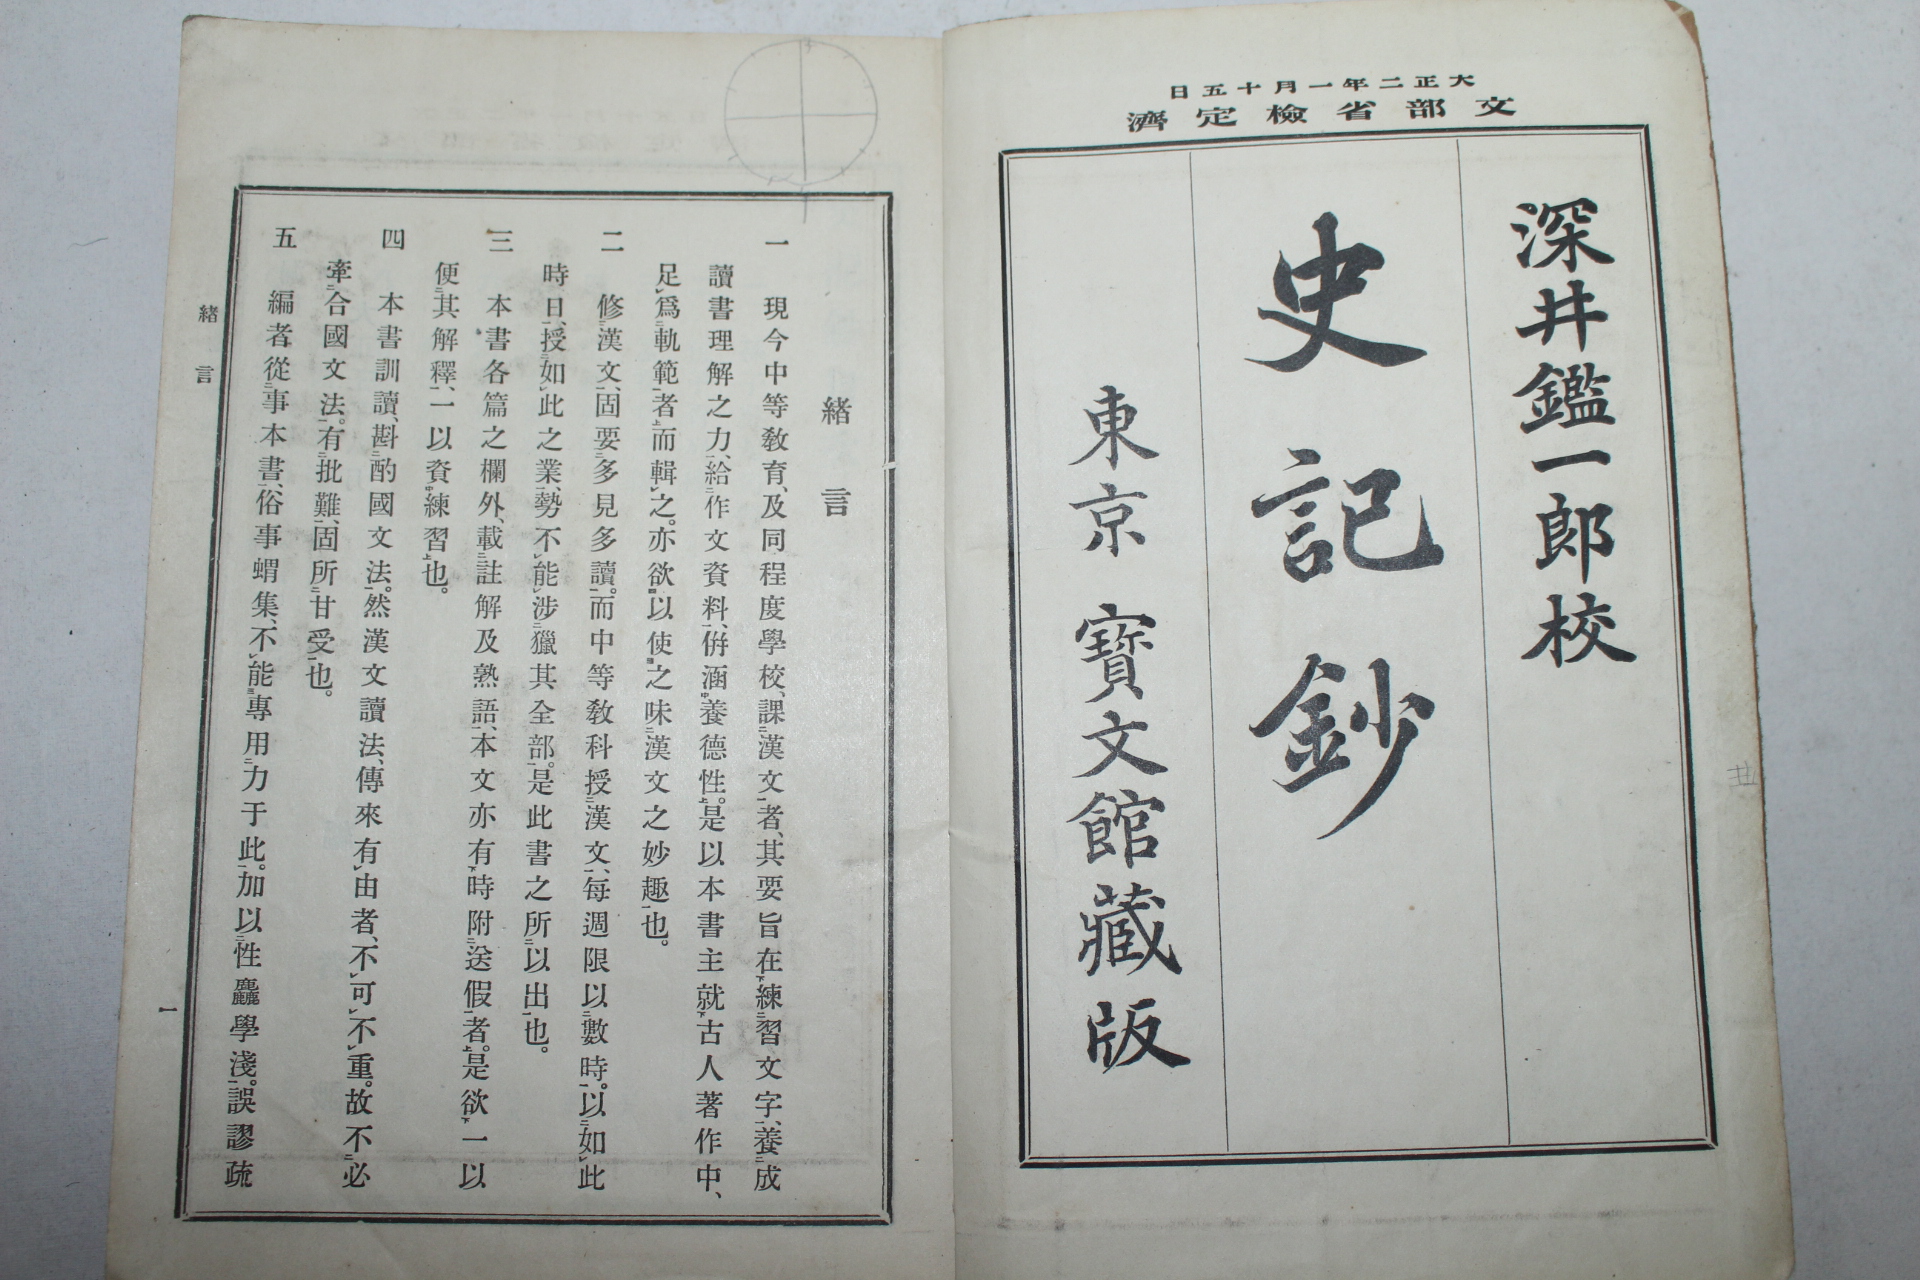 大正二年一月十五日
文部省檢定濟
深井鑑一郎校
史記鈔
東京 寶文館藏版
緒言
一 現今中等敎育、及同程度學校、課漢文者、其要旨在練習文字、養成
讀書理解之力、給作文資料、倂涵養德性。是以本書主就古人著作中、
足爲軌範者而輯之。亦欲以使之味漢文之妙趣也。
二 修漢文、固要多見多讀。而中等敎科授漢文、每週限以數時。以如此
時日、授如此之業、勢不能涉獵其全部。是此書之所以出也。
三 本書各篇之欄外、載註解及熟語、本文亦有時附送假者。是欲一以
便其解釋、一以資練習也。
四 本書訓讀、斟酌國文法。然漢文讀法、傳來有由者、不可不重。故不必
牽合國文法。有批難、固所甘受也。
五 編者從事本書、俗事蝟集、不能專用力于此。加以性麤學淺。誤謬疏
緒言
一